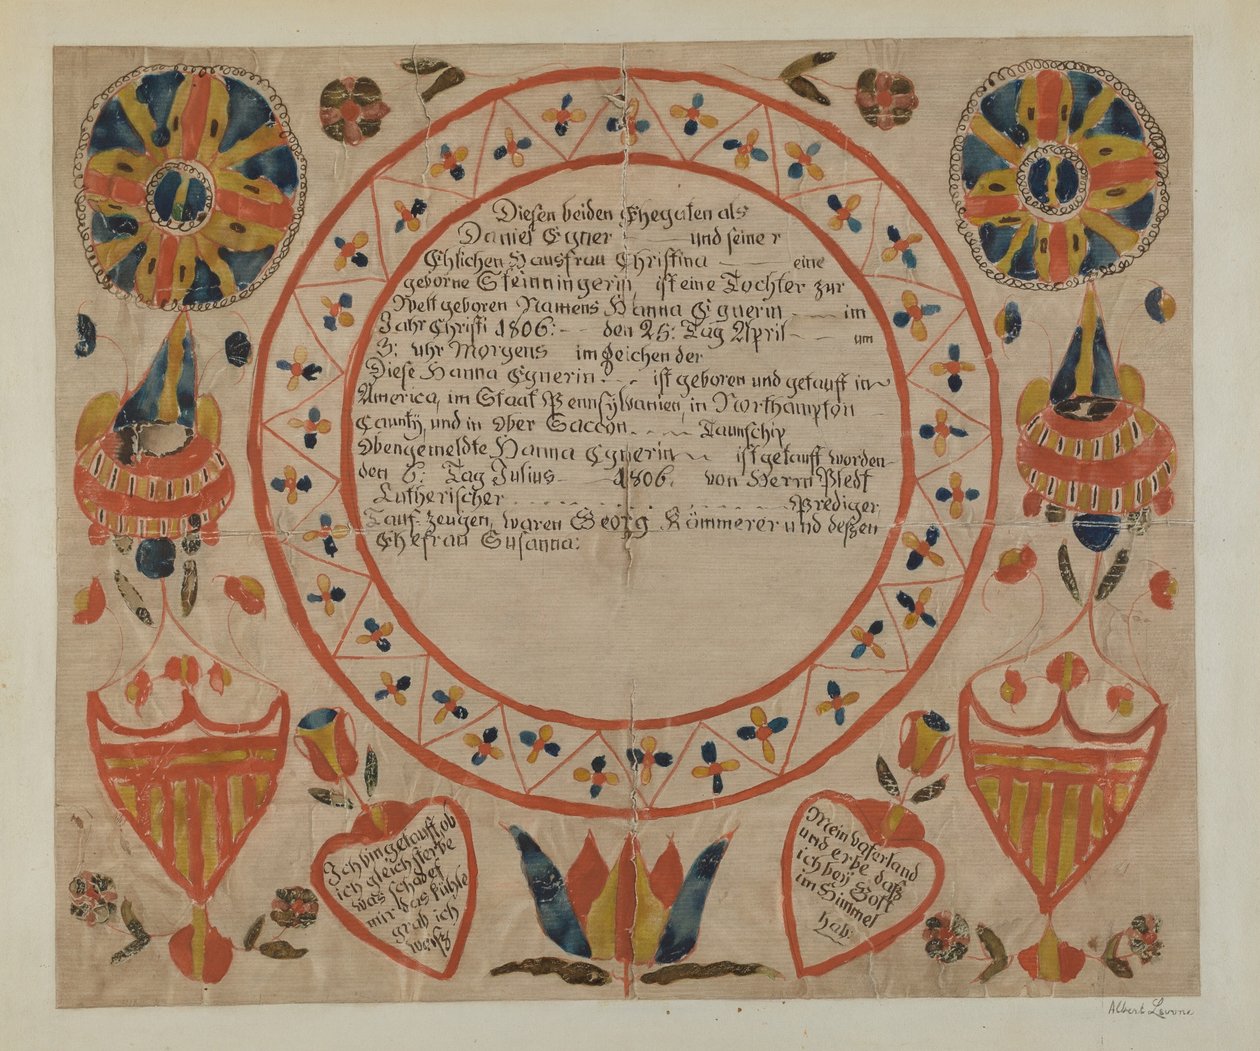 Diesen beiden Ehegaten als
Daniel Egner und seiner
Ehlichen Hausfrau Christina eine
geborne Steinningerin ist eine Tochter zur
Welt geboren Namens Hanna Egnerin im
Jahr Christi 1806: den 25: Tag April um
3: uhr Morgens im Zeichen der
Diese Hanna Egnerin ist geboren und getauft in
America, im Staat Pennsylvanien, in Northampton
Caunty, und in Ober Saccon Taunschip
Obengemeldte Hanna Egnerin ist getauft worden
den 6: Tag Julius 1806. von Herrn
Lutherischer Prediger,
Tauf zeugen, waren Georg Kömmerer und deßen
Ehefrau Susanna:
Ich bin getauft, ob
ich gleich sterbe
was schadet
mir das kühle
grab ich
weiß
Mein vaterland
und erbe daß
ich bey Gott
im Himmel
hab:
Albert Levone